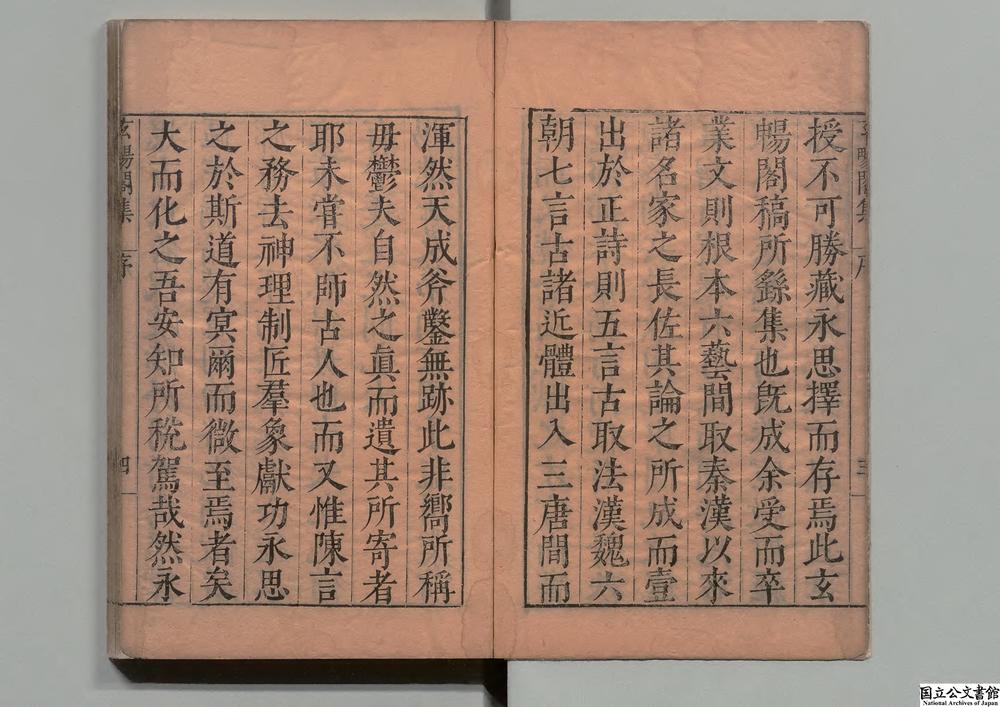 授不可勝藏永思擇而存焉此玄
暢閣稿所繇集也旣成余受而卒
業文則根本六藝間取秦漢以來
諸名家之長佐其論之所成而壹
出於正詩則五言古取法漢魏六
朝七言古諸近體出入三唐間而
渾然天成斧鑿無跡此非嚮所稱
毋鬱夫自然之眞而遺其所寄者
耶未嘗不師古人也而又惟陳言
之務去神理制匠羣象獻功永思
之於斯道有寅爾而微至焉者矣
大而化之吾安知所稅駕哉然永
玄暢閣集 序 四
国立公文書館
National Archives of Japan